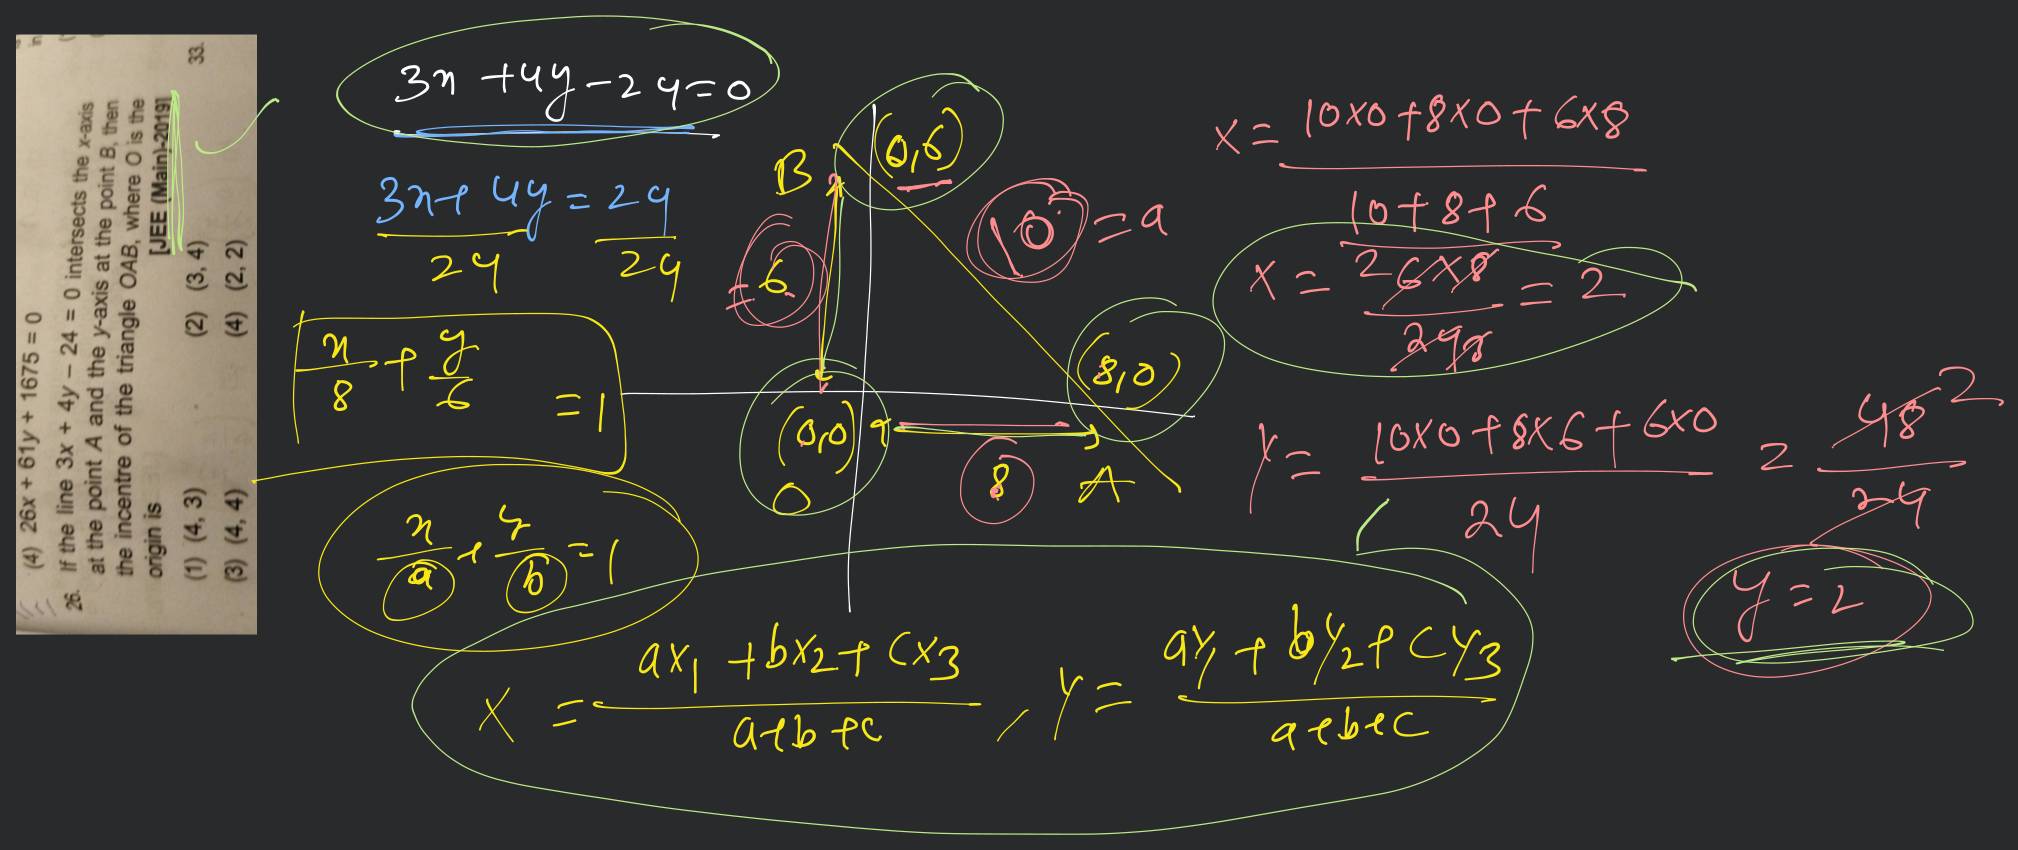 (4) 26x + 61y + 1675 = 0
26. If the line 3x + 4y − 24 = 0 intersects the x-axis
at the point A and the y-axis at the point B, then
the incentre of the triangle OAB, where O is the
origin is
[JEE (Main)-2019]
(1) (4, 3) (2) (3, 4)
(3) (4, 4) (4) (2, 2)
33.
3x + 4y − 24 = 0
3x + 4y / 24 = 24 / 24
x/8 + y/6 = 1
x/a + y/b = 1
B (0,6)
= 6
10 = a
(8,0)
(0,0)
O
8
A
X = 10×0 + 8×0 + 6×8 / 10 + 8 + 6
X = 2 6×8 / 24 = 2
Y = 10×0 + 8×6 + 6×0 / 24 = 48 / 24 2
y = 2
X = ax1 + bx2 + cx3 / a+b+c , Y = ay1 + by2 + cy3 / a+b+c